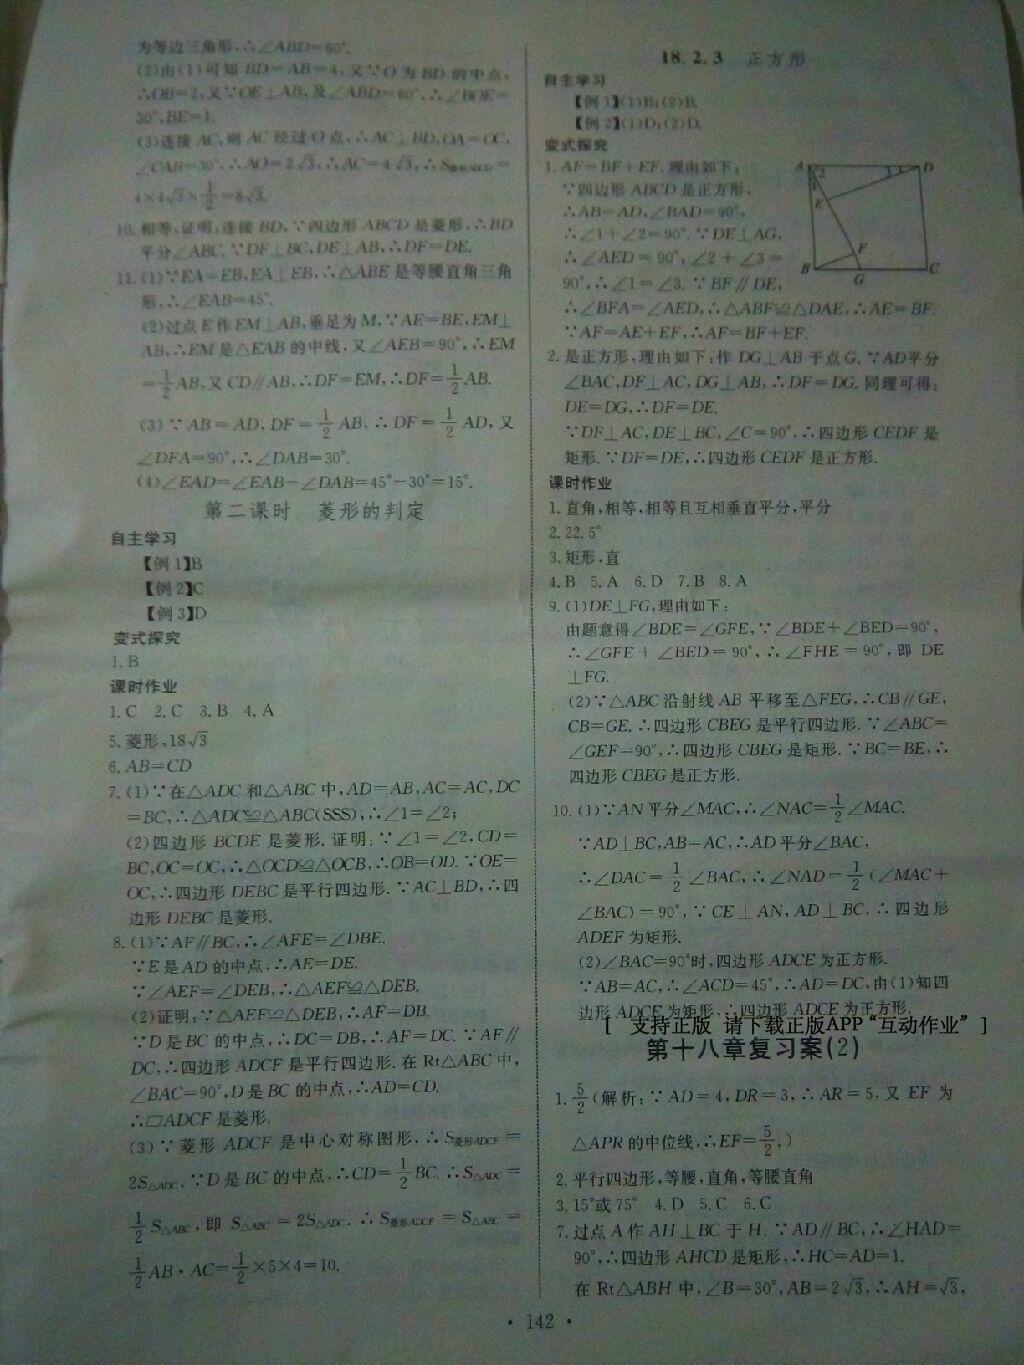 为等边三角形,∴∠ABD=60°.
(2)由(1)可知 BD=AB=4,又∵O为 BD 的中点,
∴OB=2,又∵OE⊥AB,及∠ABD=60°,∴∠BOE=
30°,BE=1.
(3)连接 AC,则 AC 经过 O 点,∴AC⊥BD,OA=OC,
∠CAB=30°,∴AO=2√3,∴AC=4√3,∴S菱形ABCD=
4×4√3×1/2=8√3.
10.相等,证明:连接 BD,∵四边形 ABCD 是菱形,∴BD
平分∠ABC.∵DF⊥BC,DE⊥AB,∴DF=DE.
11.(1)∵EA=EB,EA⊥EB,∴△ABE是等腰直角三角
形,∴∠EAB=45°.
(2)过点 E 作 EM⊥AB,垂足为 M,∵AE=BE,EM⊥
AB,∴EM 是△EAB 的中线,又∠AEB=90°,∴EM
=1/2AB,又 CD∥AB,∴DF=EM,∴DF=1/2AB.
(3)∵AB=AD,DF=1/2AB,∴DF=1/2AD,又
∠DFA=90°,∴∠DAB=30°.
(4)∠EAD=∠EAB-∠DAB=45°-30°=15°.
第二课时 菱形的判定
自主学习
【例1】B
【例2】C
【例3】D
变式探究
1.B
课时作业
1.C 2.C 3.B 4.A
5.菱形,18√3
6.AB=CD
7.(1)∵在△ADC 和△ABC 中,AD=AB,AC=AC,DC
=BC,∴△ADC≌△ABC(SSS),∴∠1=∠2;
(2)四边形 BCDE 是菱形.证明:∵∠1=∠2,CD=
BC,OC=OC,∴△OCD≌△OCB,∴OB=OD.∵OE=
OC,∴四边形 DEBC 是平行四边形.∵AC⊥BD,∴四
边形 DEBC 是菱形.
8.(1)∵AF∥BC,∴∠AFE=∠DBE.
∵E 是 AD 的中点,∴AE=DE.
∵∠AEF=∠DEB,∴△AEF≌△DEB.
(2)证明:∵△AEF≌△DEB,∴AF=DB.
∵D 是 BC 的中点,∴DC=DB,∴AF=DC.∵AF∥
DC,∴四边形 ADCF 是平行四边形.在 Rt△ABC 中,
∠BAC=90°,D 是 BC 的中点,∴AD=CD.
∴□ADCF 是菱形.
(3)∵菱形 ADCF 是中心对称图形,∴S菱形ADCF=
2S△ADC.∵D 是 BC 的中点,∴CD=1/2BC.∴S△ADC=
1/2S△ABC,即 S△ABC=2S△ADC.∴S菱形ADCF=S△ABC=
1/2AB·AC=1/2×5×4=10.
18.2.3 正方形
自主学习
【例1】(1)B;(2)B.
【例2】(1)D;(2)D.
变式探究
1.AF=BF+EF.理由如下:
∵四边形 ABCD 是正方形,
∴AB=AD,∠BAD=90°,
∴∠1+∠2=90°.∵DE⊥AG,
∴∠AED=90°,∠2+∠3=
90°,∴∠1=∠3.∵BF∥DE,
∴∠BFA=∠AED,∴△ABF≌△DAE.∴AE=BF.
∵AF=AE+EF,∴AF=BF+EF.
A D 1 2 3 E F B G C
2.是正方形,理由如下:作 DG⊥AB 于点 G.∵AD平分
∠BAC,DF⊥AC,DG⊥AB,∴DF=DG.同理可得:
DE=DG,∴DF=DE.
∵DF⊥AC,DE⊥BC,∠C=90°,∴四边形 CEDF 是
矩形.∵DF=DE,∴四边形 CEDF 是正方形.
课时作业
1.直角,相等,相等且互相垂直平分,平分
2.22.5°
3.矩形,直
4.B 5.A 6.D 7.B 8.A
9.(1)DE⊥FG,理由如下:
由题意得∠BDE=∠GFE,∵∠BDE+∠BED=90°,
∴∠GFE+∠BED=90°,∴∠FHE=90°,即 DE
⊥FG.
(2)∵△ABC 沿射线 AB 平移至△FEG,∴CB∥GE,
CB=GE.∴四边形 CBEG 是平行四边形.∵∠ABC=
∠GEF=90°,∴四边形 CBEG 是矩形.∵BC=BE,∴
四边形 CBEG 是正方形.
10.(1)∵AN 平分∠MAC,∴∠NAC=1/2∠MAC.
∵AD⊥BC,AB=AC,∴AD 平分∠BAC,
∴∠DAC=1/2∠BAC,∴∠NAD=1/2(∠MAC+
∠BAC)=90°,∵CE⊥AN,AD⊥BC,∴四边形
ADEF 为矩形.
(2)∠BAC=90°时,四边形 ADCE 为正方形.
∵AB=AC,∴∠ACD=45°,∴AD=DC,由(1)知四
边形 ADCE 为矩形,∴四边形 ADCE 为正方形.
[ 支持正版 请下载正版APP“互动作业” ]
第十八章复习案(2)
1.5/2(解析:∵AD=4,DR=3,∴AR=5,又 EF 为
△APR 的中位线,∴EF=5/2.)
2.平行四边形,等腰,直角,等腰直角
3.15°或75° 4.D 5.C 6.C
7.过点 A 作 AH⊥BC 于 H.∵AD∥BC,∴∠HAD=
90°,∴四边形 AHCD 是矩形,∴HC=AD=1.
在 Rt△ABH 中,∠B=30°,AB=2√3,∴AH=√3,
· 142 ·